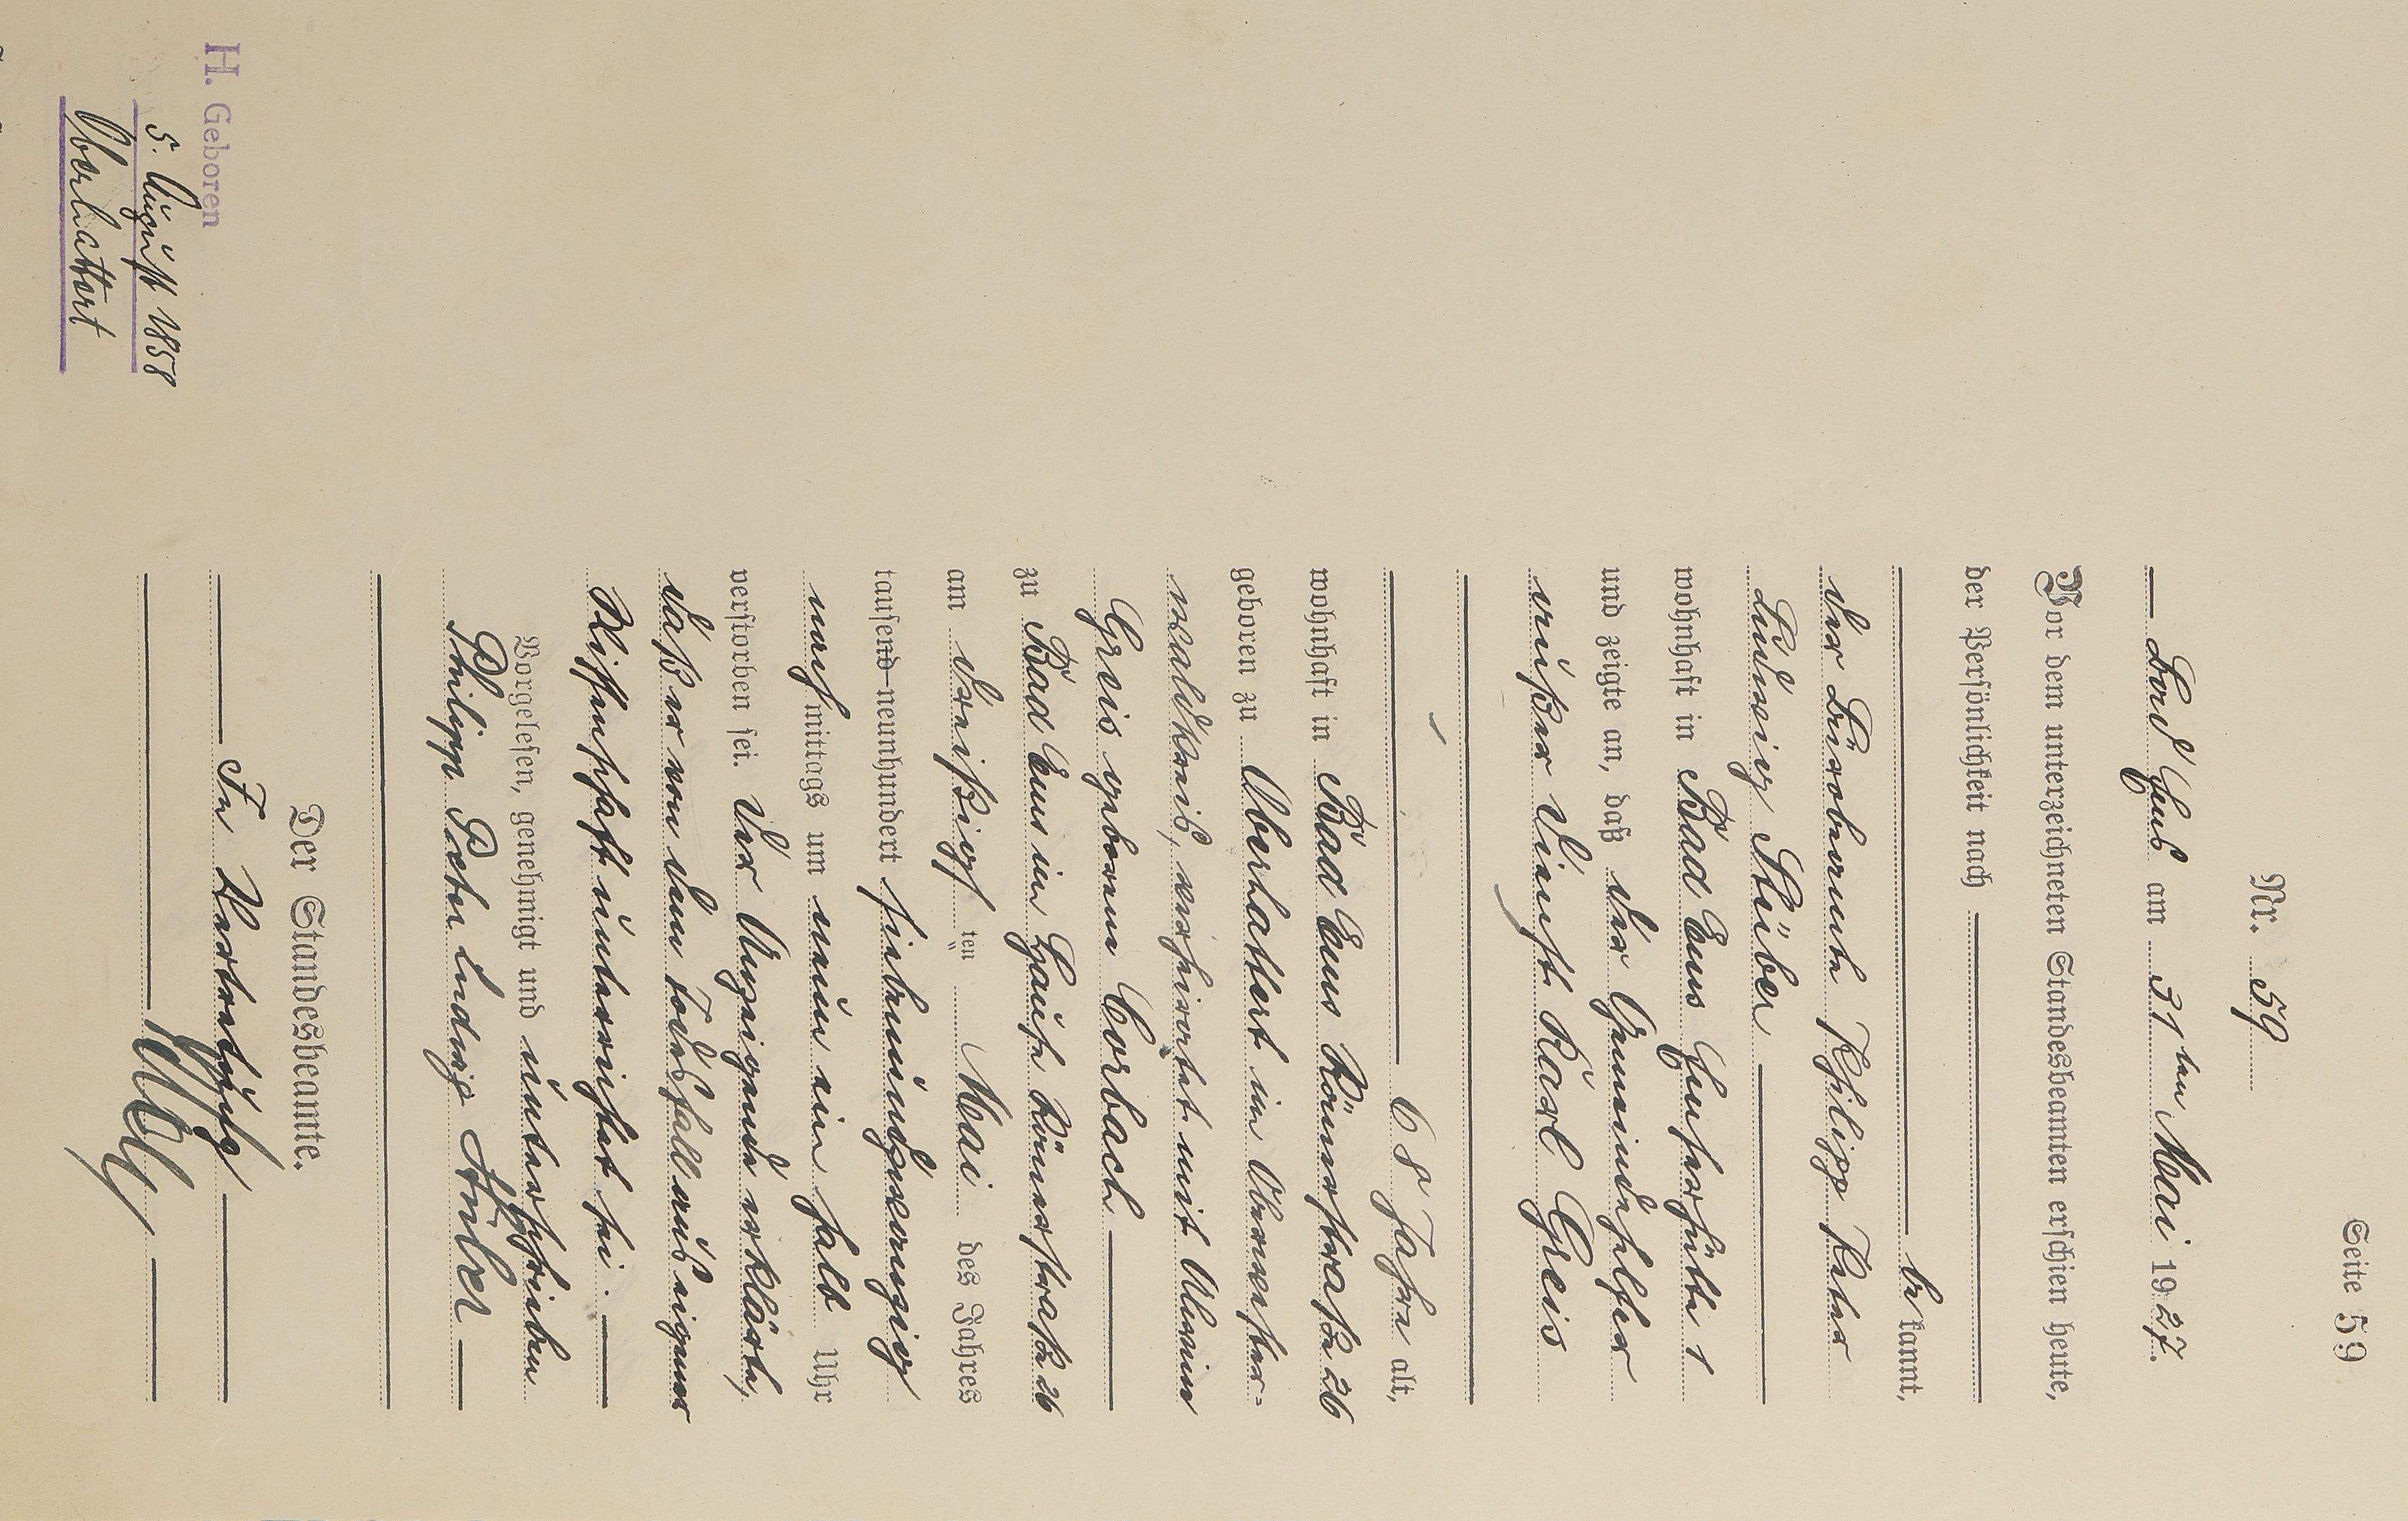 Seite 59
Nr. 59
Bad Ems am 31ten Mai 1927.
Vor dem unterzeichneten Standesbeamten erschien heute,
der Persönlichkeit nach
bekannt,
der Bürobeamte Philipp Peter
Ludwig Stüber
wohnhaft in Bad Ems 1
und zeigte an, daß der Gemeindehelfer
außer Dienst Karl Greis
68 Jahre alt,
wohnhaft in Bad Ems Römerstraße 26
geboren zu Oberhattert im Oberwester-
waldkreis, verheiratet mit
Greis geborene Corbach
zu Bad Ems im Hause Römerstraße 26
am dreißigsten Mai des Jahres
tausend neunhundert siebenundzwanzig
nachmittags um neun ein halb Uhr
verstorben sei. Der Anzeigende erklärte,
daß er von dem Todesfall aus eigener
Wissenschaft unterrichtet sei.
Vorgelesen, genehmigt und unterschrieben
Philipp Peter Ludwig Stüber
Der Standesbeamte.
In Vertretung
H. Geboren
5. August 1858
Oberhattert